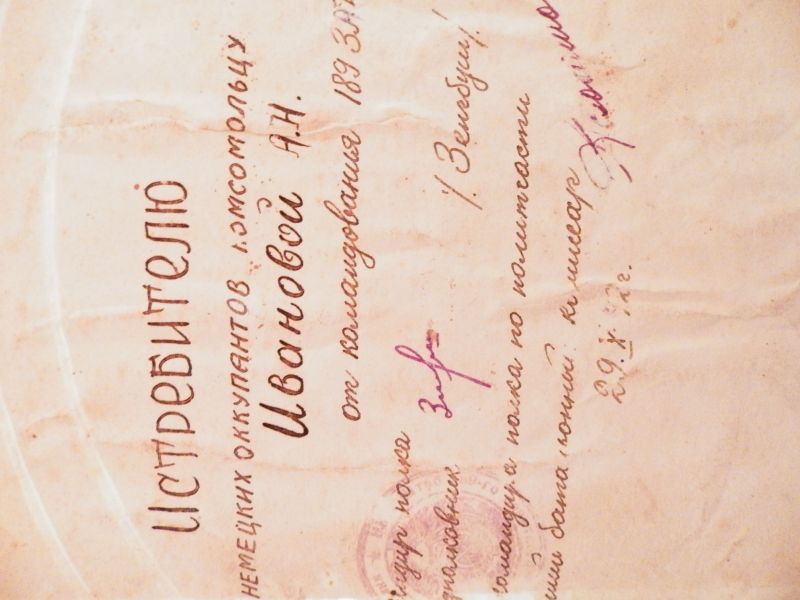 ИСТРЕБИТЕЛЮ
НЕМЕЦКИХ ОККУПАНТОВ КОМСОМОЛЬЦУ
Ивановой А.Н.
от командования 189 ЗАП
ндир полка
дполковник /Зенгбуш/
командира полка по политчасти
ший батальонный комиссар
29.X.42г.